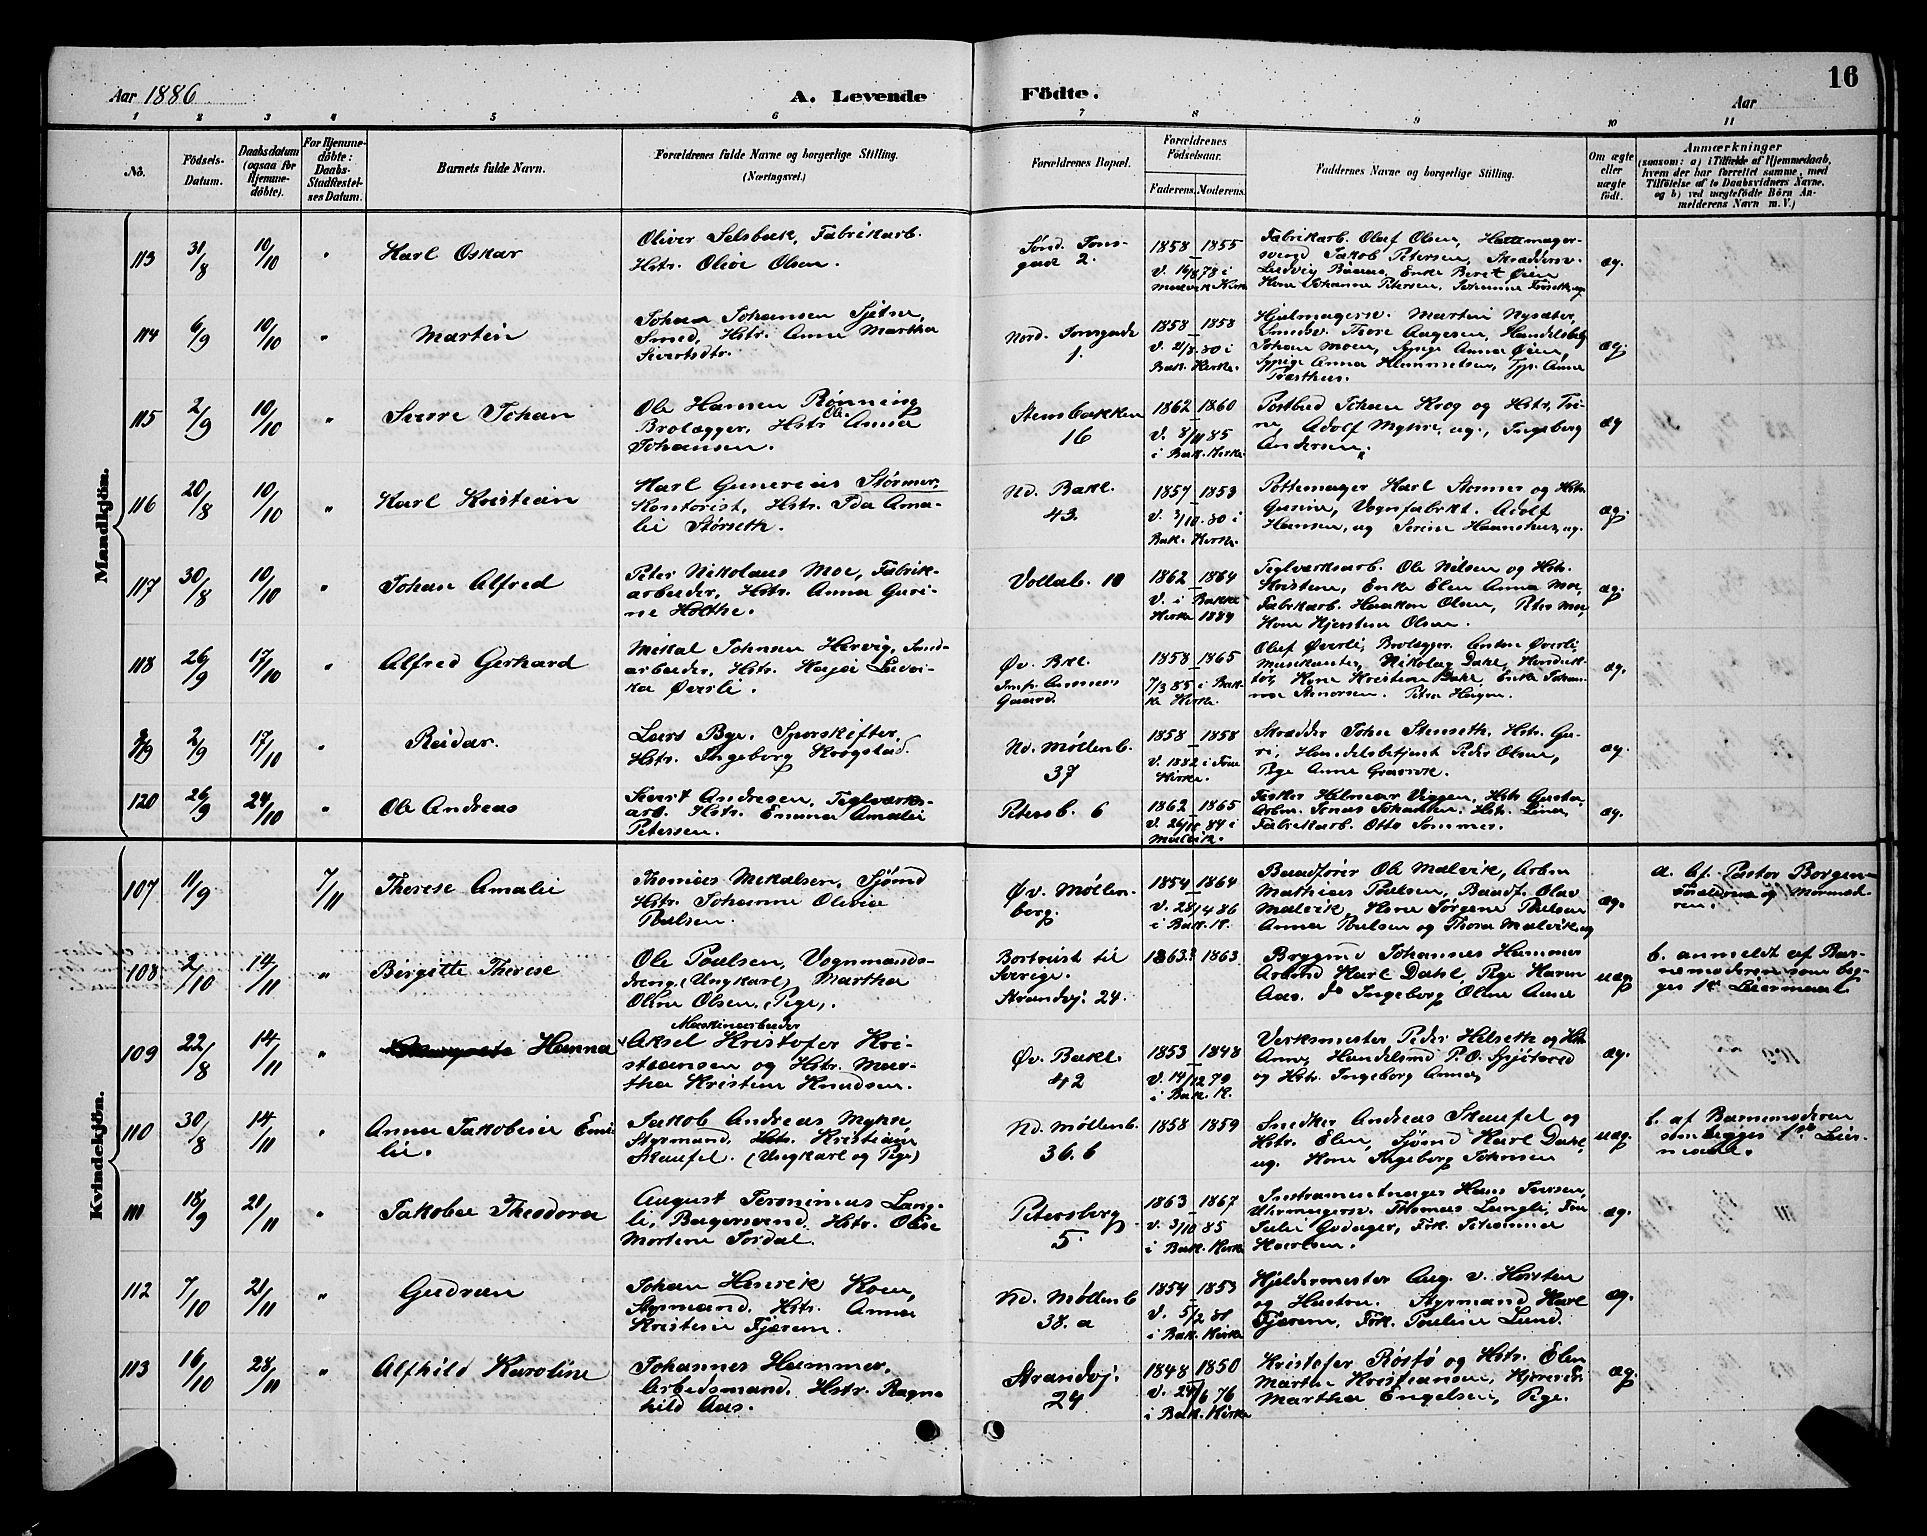 16
Aar 1886
A. Levende Födte.
Aar
1 2 3 4 5 6 7 8 9 10 11
No.
Födsels-Datum.
Daabsdatum (ogsaa for Hjemme-döbte).
For Hjemme-döbte: Daabs-Stadfæstel-ses Datum.
Barnets fulde Navn.
Forældrenes fulde Navne og borgerlige Stilling. (Næringsvei.)
Forældrenes Bopæl.
Forældrenes Födselsaar.
Faderens. Moderens.
Faddernes Navne og borgerlige Stilling.
Om ægte eller uægte födt.
Anmærkninger
(saasom: a) i Tilfælde af Hjemmedaab, hvem der har forrettet samme, med Tilföielse af to Daabsvidners Navne, og b) ved uægtefödte Börn An-melderens Navn m. V.)
Mandkjön.
113 31/8 10/10 " Karl Oskar
Oliver Selsbak, Fabrikarb.
Hstr. Olive Olsen.
Sønd. Toms-
gade 2.
1858 1855
V. 16/8 78 i
Malvik Kirke
Fabrikarb. Oluf Olsen, Hattemager-
svend Jakob Petersen, Skræddersv.
Ludvig, Enke Beret Øien
Kone Johanne Petersen, Johanne
æg.
114 6/9 10/10 " Martin
Johan Johansen Sjetne,
Smed, Hstr. Anne Martha
Sivertsdtr.
Nord. Tomsgade
1.
1858 1858
V. 21/8 80 i
Bak. Kirke.
Hjulmagersv. Martin Nysæter,
Smedsv. Thore Aagesen, Handelsbtj.
Johan Moen, Sypige Anna Øien,
Sypige Anna Klemmetsen, Typ. Anne
æg.
115 2/9 10/10 " Sverre Johan
Ole Hansen Rønning
Brolægger, Hstr. Oli Anna
Johansen.
Stensbakken
16
1862 1860
V. 8/11 85
i Bak. Kirke
Postbud Johan Krog og Hstr. Tri-
ne, Adolf Myhre, ug., Ingeborg
Andersen "
æg
116 20/8 10/10 " Karl Kristian
Karl Gunerius Størmer,
Kontorist, Hstr. Ida Ama-
lie Størseth.
Nd. Bakl.
43.
1857 1853
V. 3/10 80 i
Bak. Kirke.
Pottemager Karl Størmer og Hstr.
Gurine, Vognfabrkt. Adolf
Hansen, ug Serine Haanshus, ug.
æg.
117 30/8 10/10 " Johan Alfred
Peter Nikolaus Moe, Fabrik-
arbeider, Hstr. Anna Guri-
ne Holthe.
Vollab. 10
1862 1864
V. i Bakke
Kirke 1884
Teglværksarb. Ole Nilsen og Hstr.
Kristine, Enke Elen Anna Moe,
Fabrikarb. Haakon Olsen, Peter Moe,
Kone Kjerstine Olsen.
æg.
118 26/9 17/10 " Alfred Gerhard
Mikal Johnsen Hervig, Jord-
arbeider, Hstr. Kaja Lovi-
ka Øverli.
Øv. Bkl.
Gaard.
1858 1865
7/3 85 i Bak-
ke Kirke.
Oluf Øverli, Brolægger Anton Øverli,
Musikanter, Nikolay Dahl, Konduk-
tør, Kone Kristine Dahl, Enke Johan-
ne Arnorsen. Petra Haugen.
æg.
119 2/9 17/10 " Reidar.
Lars Bye. Sporskifter,
Hstr. Ingeborg Krogstad.
Nd. Møllenb.
37
1858 1858
V. 1882 i Frue
Kirke.
Skrædder John Stenseth. Hstr. Gu-
ri, Handelsbetjent Peder Olsen,
Pige Anne Graavik.
æg.
120 26/9 24/10 " Ole Andreas
Sivert Andresen, Teglværks-
arb. Hstr. Emma Amalie
Petersen.
Petersb. 6
1862 1865
V. 26/ 84 i
Malvik.
Fisker Helmer Viggen, Hstr. Gusta,
Arbm. Jonas Johansen, Hstr. Lina,
Fabrikarb. Otto Sommer.
æg.
Kvindekjön.
107 11/9 7/11 Therese Amalie
Thomas Mekalsen, Sjømd
Hstr. Johanne Olivia
Poulsen.
Øv. Møllen-
berg.
1854 1864
V. 28/4 86
i Bak. K.
Baadfører Ole Malvik, Arbm
Mathias Poulsen, Baadf. Olav
Malvik, Kone Jørgine Poulsen
Anna Poulsen og Thora Malvik, ug
æg.
a. Af Pastor Borgen
Faderen og Mormode-
ren.
108 2/10 14/11 " Birgitte Therese
Ole Poulsen, Vognmands-
dreng, (Ungkarl) Martha
Oline Olsen, (Pige).
Bortreist til
Sverige.
Strandvj. 24.
1863? 1863
Brygmd Johannes Hammer
Arbmd Karl Dahl, Pige Karen
Aas. do Ingeborg Oline Aune
uæg
b. anmeldt af Bar-
nemoderen som beg-
ges 1ste Leiermaal
109 22/8 14/11 " Hanna
Maskinarbeider
Aksel Kristofer Kri-
stiansen og Hstr. Mar-
tha Kristine Knudsen.
Øv. Bakl.
42
1853 1848
V. 14/12 79
i Bak. K.
Verksmester Peder Hilseth og Hstr
Anna, Handelsmd P. O. Spjøtvold
og Hstr. Ingeborg Anna,
æg.
110 30/8 14/11 " Anna Jakobine Emi-
lie.
Jakob Andreas Myhre,
Styrmand, Hstr. Kristiane
Skaufel. (Ungkarl og Pige)
Nd. Møllenb.
36. b
1858 1859
Snedker Andreas Skaufel og
Hstr. Elen, Sjømd Karl Dahl,
ug. Kone Ingeborg Johnsen
uæg.
b. af Barnemoderen
som begges 1ste Leier-
maal.
111 18/9 21/11 " Jakobea Theodora
August Jeronimus Lang-
li, Bagersvend, Hstr. Oline
Mortine Tordal.
Petersberg
5.
1863 1867
V. 3/10 85
i Bak. Kirke
Instrumentmager Hans Iversen,
Uhrmagersv. Thomas Langli, Fru
Julie Qvdager, Frk. Johanna
Haarlsen.
æg.
112 7/10 21/11 " Gudrun
Johan Henrik Koen,
Styrmand, Hstr. Anna
Kristine Fjærem.
Nd. Møllenb
38. a
1854 1853
V. 5/2 81
i Bak. Kirke
Kjeldermester Aug. v. Horsten
og Hustru. Styrmand Karl
Fjærem, Frk. Pouline Lund.
æg.
113 16/10 28/11 " Alfhild Karoline
Johannes Hammer,
Arbedsmand, Hstr. Ragn-
hild Aas.
Strandvj.
24
1848 1850
V. 24/6 76
i Bak. Kirke
Kristofer Røsfø og Hstr. Elen
Martin Kristiansen,
Martha Engelsen, Pige.
æg.